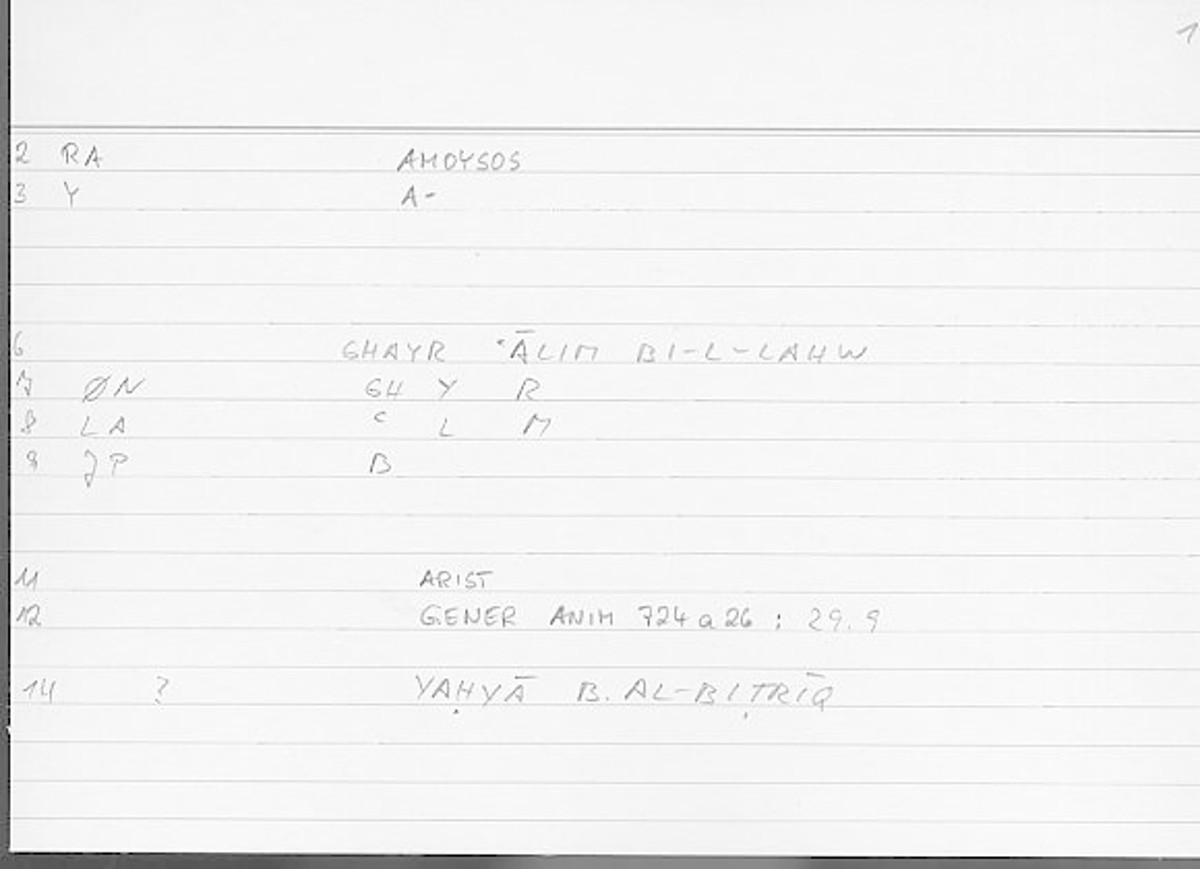 1
2 RA AMOYSOS
3 Y A-
6 GHAYR ʿĀLIM BI-L-LAHW
7 ØN GH Y R
8 LA ʿ L M
9 JP B
11 ARIST
12 GENER ANIM 724 a 26 : 29.9
14 ? YAḤYĀ B. AL-BIṬRĪQ